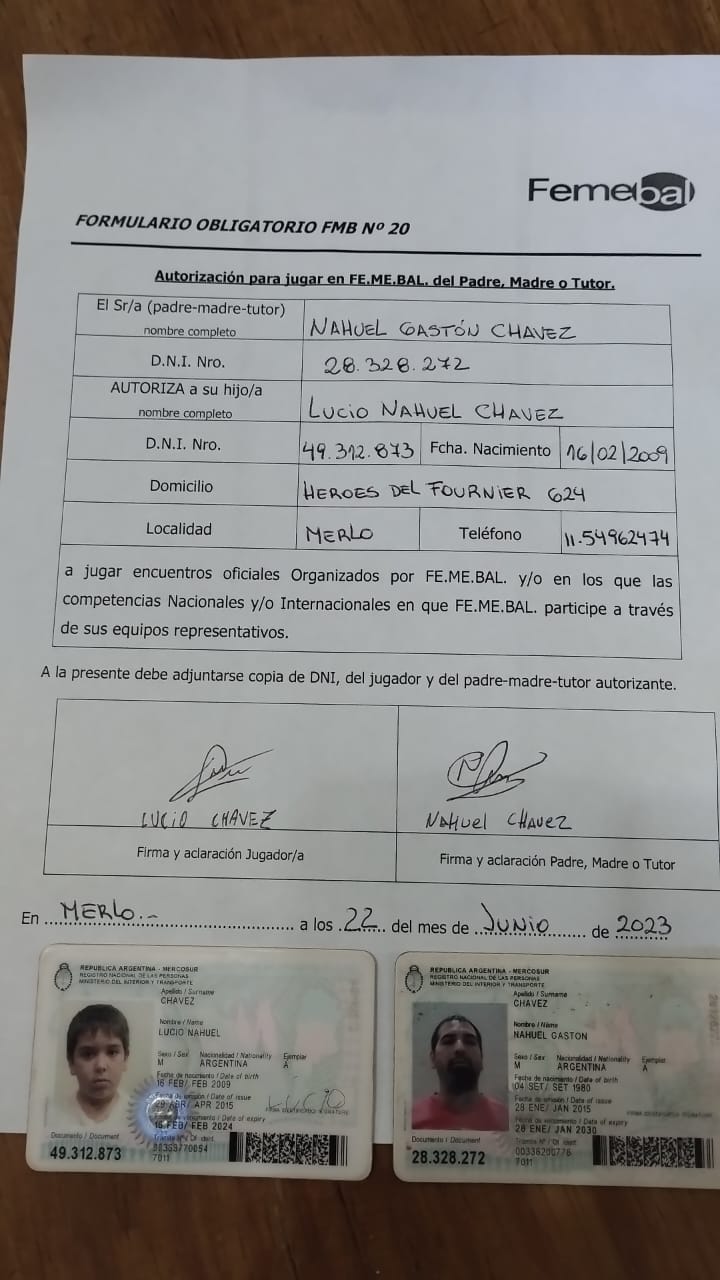 Femebal
FORMULARIO OBLIGATORIO FMB Nº 20
Autorización para jugar en FE.ME.BAL. del Padre, Madre o Tutor.
El Sr/a (padre-madre-tutor) nombre completo NAHUEL GASTÓN CHAVEZ
D.N.I. Nro. 28.328.272
AUTORIZA a su hijo/a nombre completo LUCIO NAHUEL CHAVEZ
D.N.I. Nro. 49.312.873 Fcha. Nacimiento 16/02/2009
Domicilio HEROES DEL FOURNIER 624
Localidad MERLO Teléfono 11.54962474
a jugar encuentros oficiales Organizados por FE.ME.BAL. y/o en los que las
competencias Nacionales y/o Internacionales en que FE.ME.BAL. participe a través
de sus equipos representativos.
A la presente debe adjuntarse copia de DNI, del jugador y del padre-madre-tutor autorizante.
LUCIO CHAVEZ
Firma y aclaración Jugador/a
NAHUEL CHAVEZ
Firma y aclaración Padre, Madre o Tutor
En MERLO.- a los 22 del mes de JUNIO de 2023
REPUBLICA ARGENTINA - MERCOSUR
REGISTRO NACIONAL DE LAS PERSONAS
MINISTERIO DEL INTERIOR Y TRANSPORTE
Apellido / Surname
CHAVEZ
Nombre / Name
LUCIO NAHUEL
Sexo / Sex Nacionalidad / Nationality Ejemplar
M ARGENTINA A
Fecha de nacimiento / Date of birth
16 FEB/ FEB 2009
Fecha de emisión / Date of issue
29 ABR/ APR 2015
Fecha de vencimiento / Date of expiry
16 FEB/ FEB 2024
Documento / Document
49.312.873
7011
REPUBLICA ARGENTINA - MERCOSUR
REGISTRO NACIONAL DE LAS PERSONAS
MINISTERIO DEL INTERIOR Y TRANSPORTE
Apellido / Surname
CHAVEZ
Nombre / Name
NAHUEL GASTON
Sexo / Sex Nacionalidad / Nationality Ejemplar
M ARGENTINA A
Fecha de nacimiento / Date of birth
04 SET/ SET 1980
Fecha de emisión / Date of issue
28 ENE/ JAN 2015
Fecha de vencimiento / Date of expiry
28 ENE/ JAN 2030
Documento / Document
28.328.272
Trámite Nº / Of. ident.
00338200778
7011